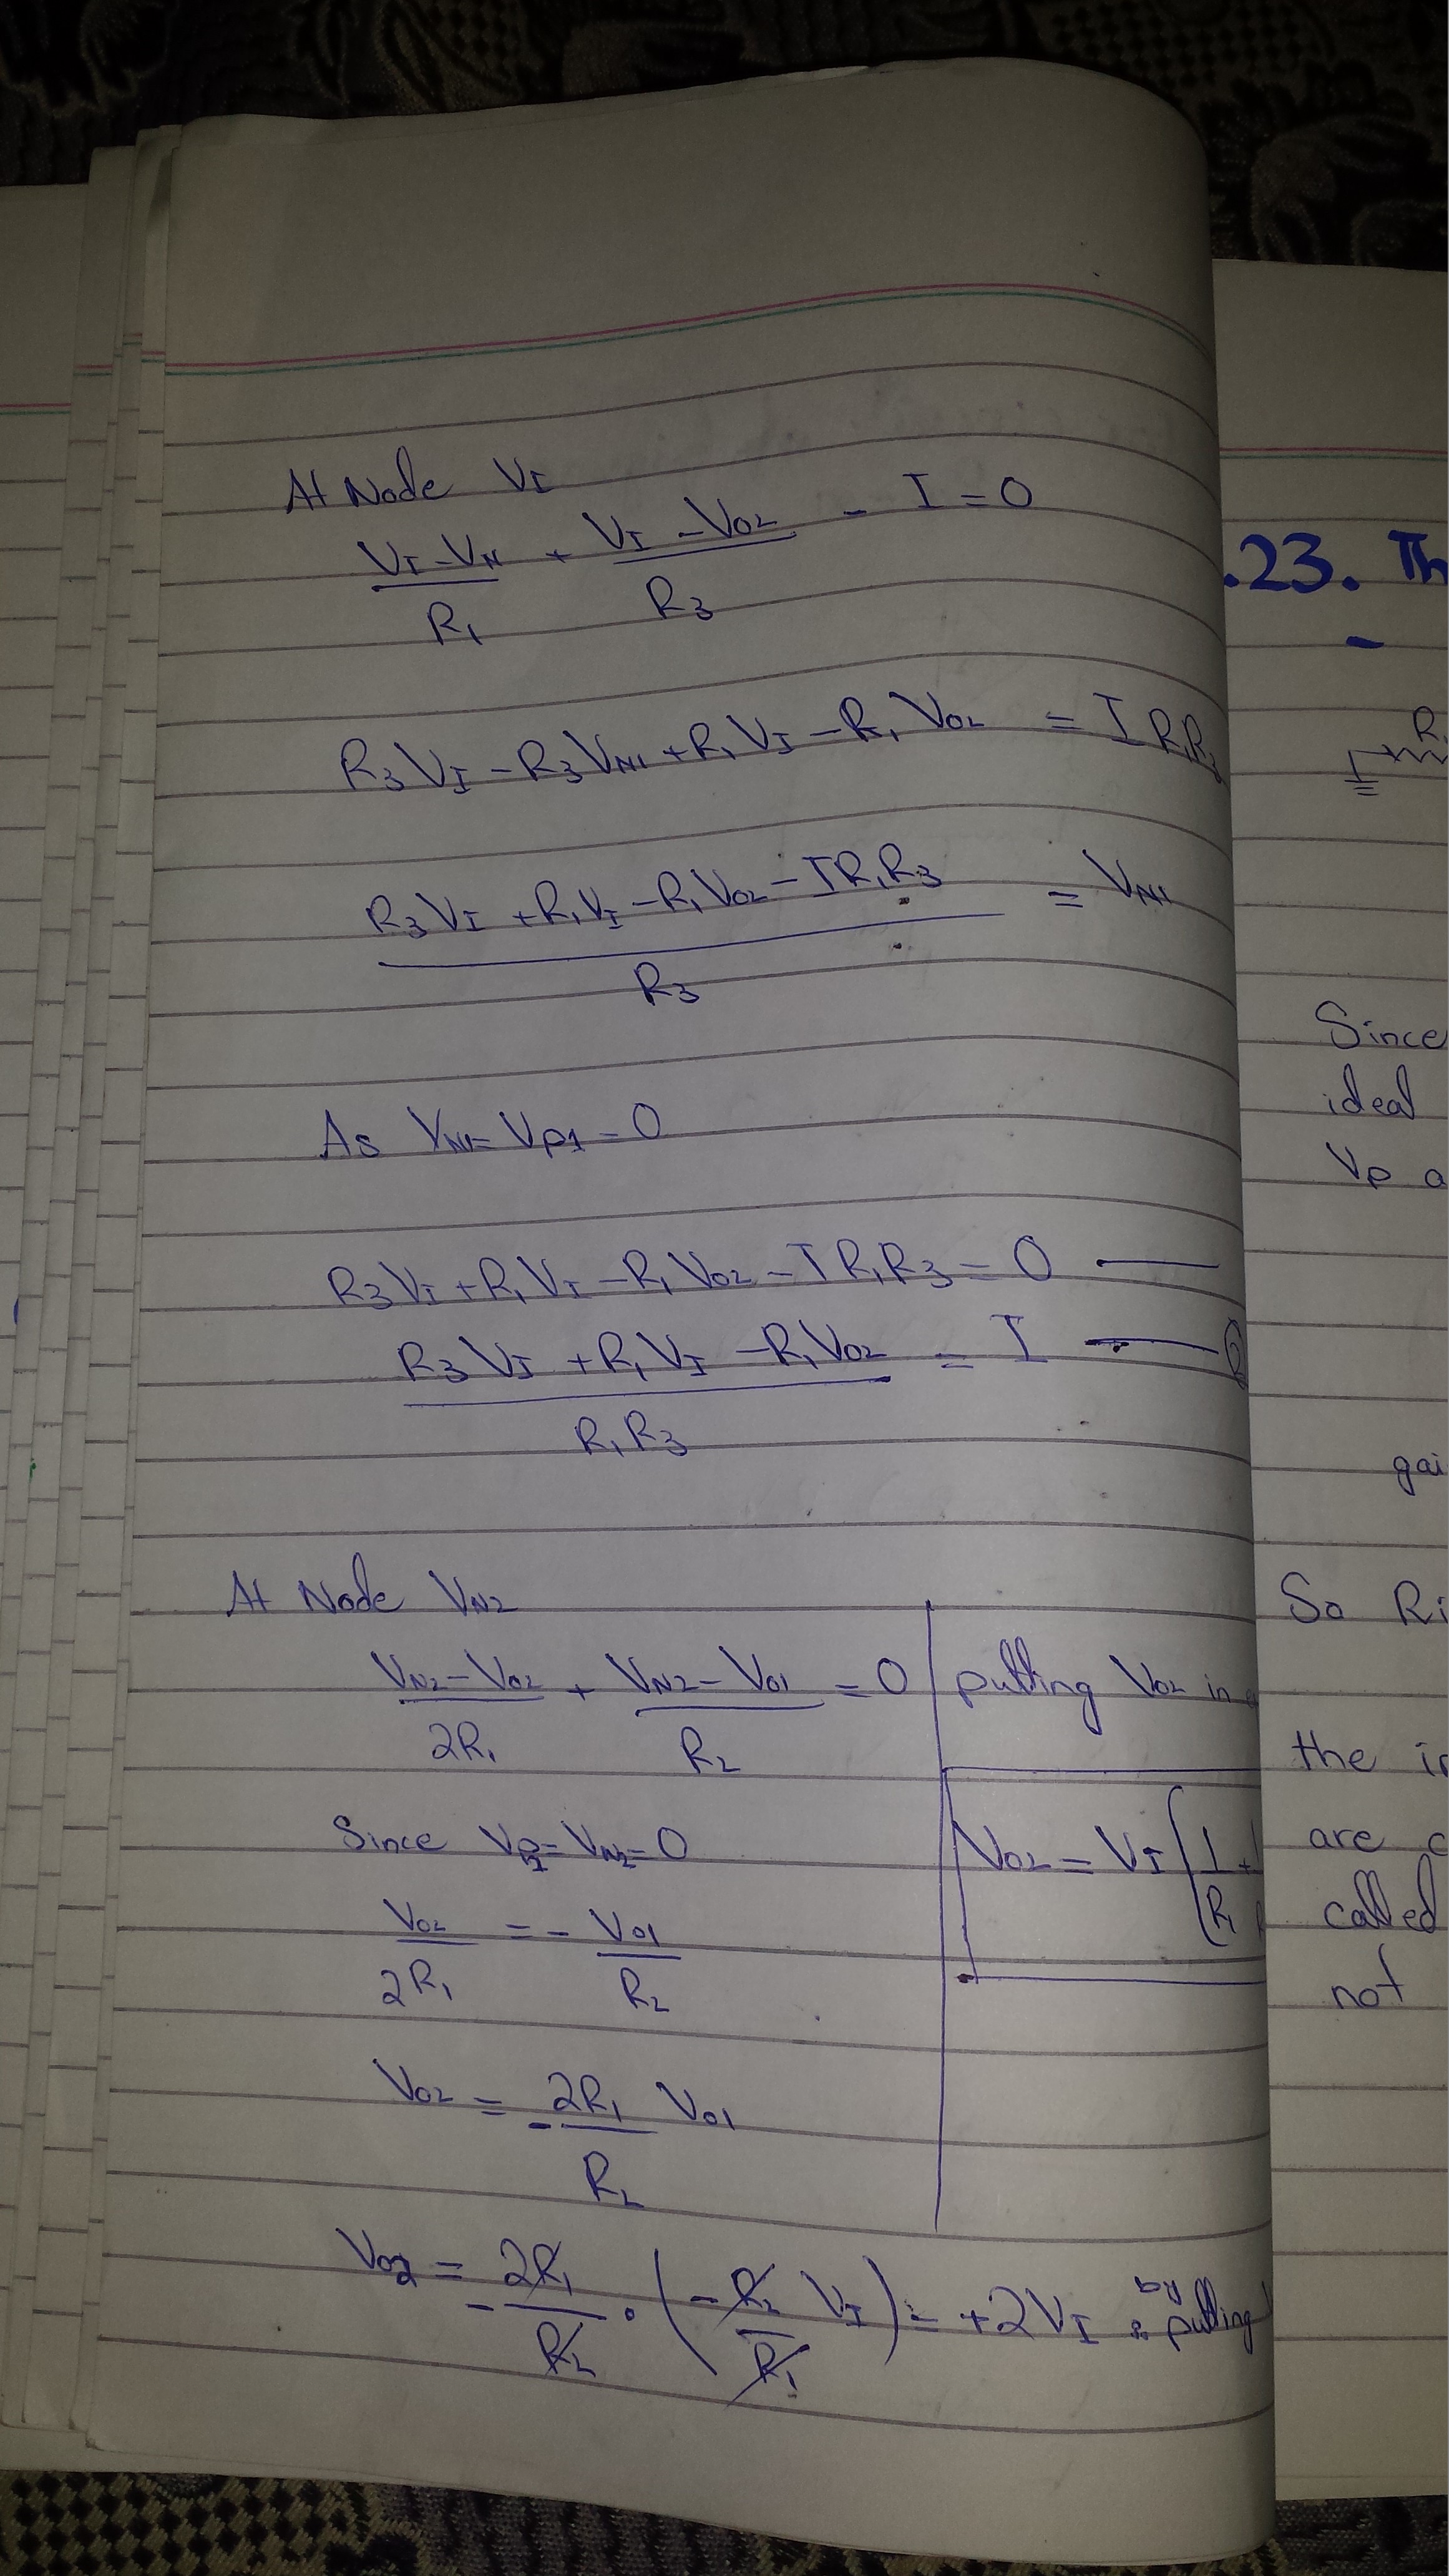 At Node VI
(VI - VN)/R1 + (VI - VO2)/R3 - I = 0
R3VI - R3VN1 + R1VI - R1VO2 = I R1R3
(R3VI + R1VI - R1VO2 - IR1R3)/R3 = VN1
As VN1 = VP1 = 0
R3VI + R1VI - R1VO2 - IR1R3 = 0
(R3VI + R1VI - R1VO2)/R1R3 = I
At Node VN2
(VN2 - VO2)/2R1 + (VN2 - VO1)/R2 = 0
Since VP2 = VN2 = 0
VO2/2R1 = - VO1/R2
VO2 = - 2R1/R2 VO1
VO2 = - 2R1/R2 . (- R2/R1 VI) = +2VI by putting
putting VO2 in
VO2 = VI (1/R1 +
.23. Th
R
Since
ideal
VP a
gai
So Ri
the i
are c
called
not